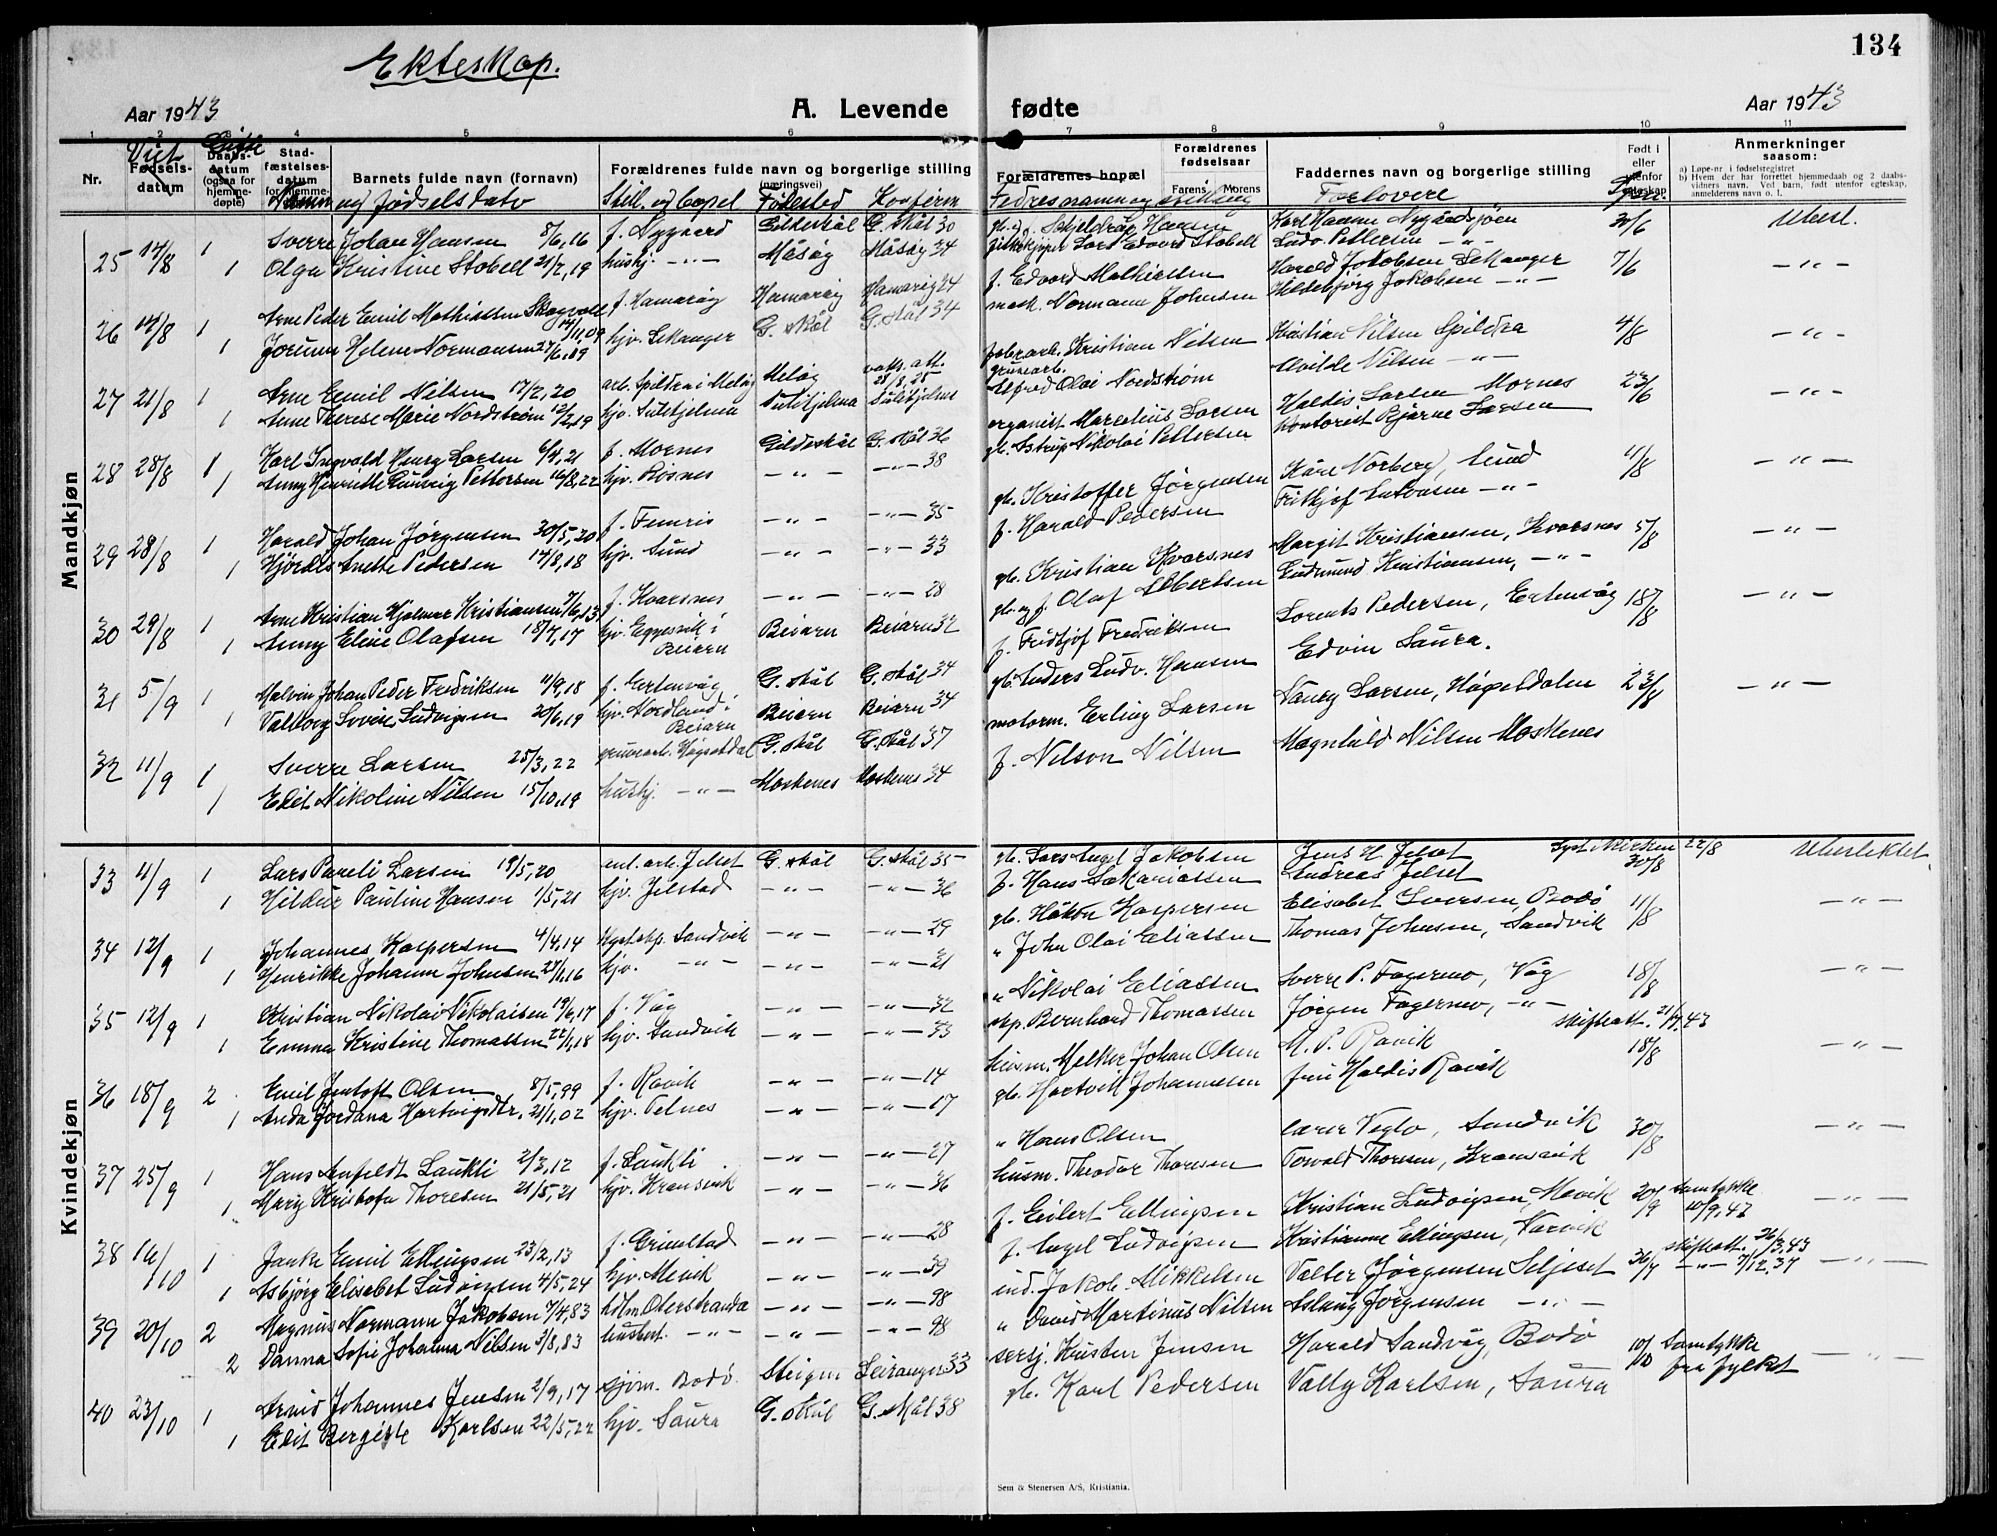 134
Ekteskap.
Aar 1943 A. Levende fødte Aar 1943
1 2 3 4 5 6 7 8 9 10 11
Nr. Viet Fødselsdatum Gifte Daabsdatum (ogsaa for hjemmedøpte) Stadfæstelsesdatum for hjemmedøpte Barnets fulde navn (fornavn) Forældrenes fulde navn og borgerlige stilling (næringsvei) Forældrenes bopæl Forældrenes fødselsaar Farens Morens Faddernes navn og borgerlige stilling Født i eller utenfor egteskap Anmerkninger saasom:
a) Løpe-nr i fødselsregistret
b) Hvem der har forrettet hjemmedaab og 2 daabsvidners navn. Ved barn, født utenfor egteskap, anmelderens navn o. l.
Navn og fødselsdato Still. og bopel Fødested Konfirm Fedres navn og stilling Forlovere
Mandkjøn
25 14/8 1 Sverre Johan Hansen 8/6,16 f. Nygaard Gildeskål G. skål 30 Karl Hansen Nygårdsjøen 30/6 Uberl.
1 Olga Kristine Stobell 21/2,19 hushj. -"- Måsøy Måsøy 34 Lars Edvard Stobell Ludv. Pettersen -"-
26 14/8 1 Arne Peder Emil Mathiassen Skagvoll 14/11,09 f. Hamarøy Hamarøy Hamarøy 24 f. Edvard Mathiassen Harald Jakobsen Sekanger 7/6 -"-
1 Jorunn Helene Normansen 24/6,19 hjv. Sekanger G. skål G. skål 34 mask. Normann Johnsen Hildebjørg Jakobsen -"-
27 21/8 1 Arne Emil Nilsen 17/2,20 arb. Spildra i Meløy Meløy vaks. att. 28/8,25 Kristian Nilsen Kristian Nilsen Spildra 4/8 -"-
1 Anne Therese Marie Nordstrøm 12/2,19 hjv. Sulitjelma Sulitjelma Sulitjelma gruvearb. Alfred Olai Nordstrøm Alvilde Nilsen -"-
28 28/8 1 Karl Ingvald Henry Larsen 6/4,21 f. Mornes Gildeskål G. skål 36 organist Marselius Larsen Haldis Larsen Mornes 23/6 -"-
1 Anny Henriette Lünvig Pettersen 16/8,22 hjv. Røsnes -"- -"- 38 gb. Astrup Nikolai Pettersen kontorist Bjarne Larsen
29 28/8 1 Harald Johan Jørgensen 30/5,20 f. Femris -"- -"- 35 gb. Kristoffer Jørgensen Kåre Norberg, Sund 11/8 -"-
1 Hjørdis Anette Pedersen 14/8,18 hjv. Sund -"- -"- 33 f. Harald Pedersen Fritjof -"-
30 29/8 1 Arne Kristian Hjalmar Kristiansen 7/6,13 f. Kvarsnes -"- -"- 28 gb. Kristian Kvarsnes Margit Kristiansen, Kvarsnes 5/8 -"-
1 Anny Eline Olafsen 18/7,17 hjv. Eggesvik i Beiarn Beiarn Beiarn 32 gb. og f. Olaf Albertsen Gudmund Kristiansen, -"-
31 5/9 1 Malvin Johan Peder Fredriksen 11/9,18 f. Ertenvåg G. skål G. skål 34 f. Fridtjof Fredriksen Lorents Pedersen, Ertenvåg 18/8 -"-
1 Valborg Lovise Ludvigsen 20/6,19 hjv. Nordland i Beiarn Beiarn Beiarn 34 gb. Anders Ludv. Hansen Edvin Saura.
32 11/9 1 Sverre Larsen 25/3,22 gruvearb. Høgsetdal G. skål G. skål 37 motorm. Erling Larsen Nancy Larsen, Høgsetdalen 23/8 -"-
1 Edit Nikoline Nilsen 15/10,19 hushj. -"- Moskenes Moskenes 34 f. Nilson Nilsen Magnhild Nilsen Moskenes
Kvindekjøn
33 11/9 1 Lars Pareli Larsen 19/5,20 anl. arb. Jelset G. skål G. skål 35 gb. Lars Angel Jakobsen Jens H. Jelset Lyst i kirken 22/8 30/8 Uberliktet
1 Hildur Pauline Hansen 1/5,21 hjv. Jelstad -"- -"- 36 f. Hans Sakariassen Andreas Jelset
34 12/9 1 Johannes Kaspersen 4/4,14 Kystskp. Sandvik -"- -"- 29 gb. Håkon Kaspersen Elisabet Iversen, Bodø 11/8 -"-
1 Henrikke Johanna Johnsen 27/1,16 hjv. -"- -"- -"- 31 " John Olai Eliassen Thomas Johnsen, Sandvik
35 12/9 1 Kristian Nikolai Nikolaisen 19/6,17 f. Våg -"- -"- 32 " Nikolai Eliassen Sverre P. Fagermo, Våg 18/8 -"-
1 Emma Kristine Thomassen 22/1,18 hjv. Sandvik -"- -"- 33 skp. Bernhard Thomassen Jørgen Fagermo, -"-
36 18/9 2 Emil Jentoft Olsen 8/5,99 f. Ravik -"- -"- 14 husm. Melker Johan Olsen M. P. Ravik skifteatt. 21/7.43 18/8 -"-
1 Anda Jordana Hartvigsdtr. 21/1,02 hjv. Telnes -"- -"- 17 gb. Hartvik Johannesen fru Haldis Ravik
37 25/9 1 Hans Anfeldt Laukli 2/3,12 f. Laukli -"- -"- 27 " Hans Olsen lærer Veglo, Sandvik 30/8 -"-
1 Mary Kristofa Thoresen 21/5,21 hjv. Kransvik -"- -"- 36 husm. Theodor Thoresen Torvald Thoresen, Kransvik
38 16/10 1 Janke Emil Ellingsen 23/2,13 f. Grimstad -"- -"- 28 f. Eilert Ellingsen Kristian Ludvigsen, Mevik 20/9 samtykke 10/9.43 -"-
1 Asbjørg Elisabet Ludvigsen 4/5,24 hjv. Mevik -"- -"- 39 f. Angel Ludvigsen Kristianne Ellingsen, Narvik
39 20/10 2 Magnus Normann Jakobsen 7/4,83 Oterstranda -"- -"- 98 ind. Jakob Mikkelsen Valter Jørgensen Seljeset skifteatt. 26/3.43 -"- 7/12.37 -"-
2 Danna Sofie Johanna Nilsen 3/8,83 husbest. -"- -"- -"- 98 " Daniel Martinus Nilsen Aslaug Jørgensen -"-
40 23/10 1 Arnid Johannes Jensen 2/9,17 sjøm. Bodø Steigen Leiranger 33 Kristen Jensen Harald Sandvåg, Bodø 10/10 Samtykke fra fylket -"-
1 Edit Bergitte Karlsen 22/5,22 hjv. Saura G. skål G. skål 38 gb. Karl Pedersen Vally Karlsen, Saura
Sem & Stenersen A/S, Kristiania.